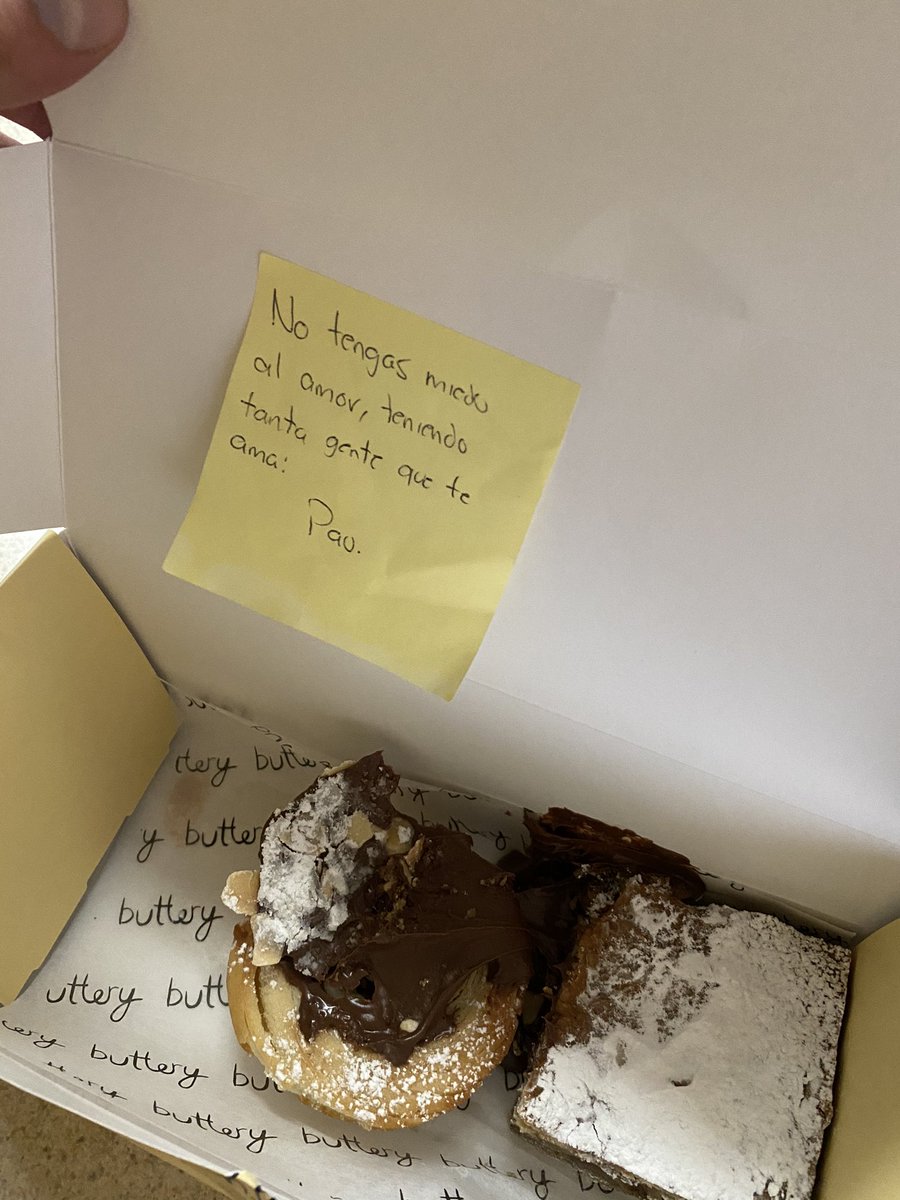 No tengas miedo
al amor, teniendo
tanta gente que te
ama:
Pau.
rtery butte
y butter
buttery
uttery butt
tery buttery bu
buttery buttery buttery bu